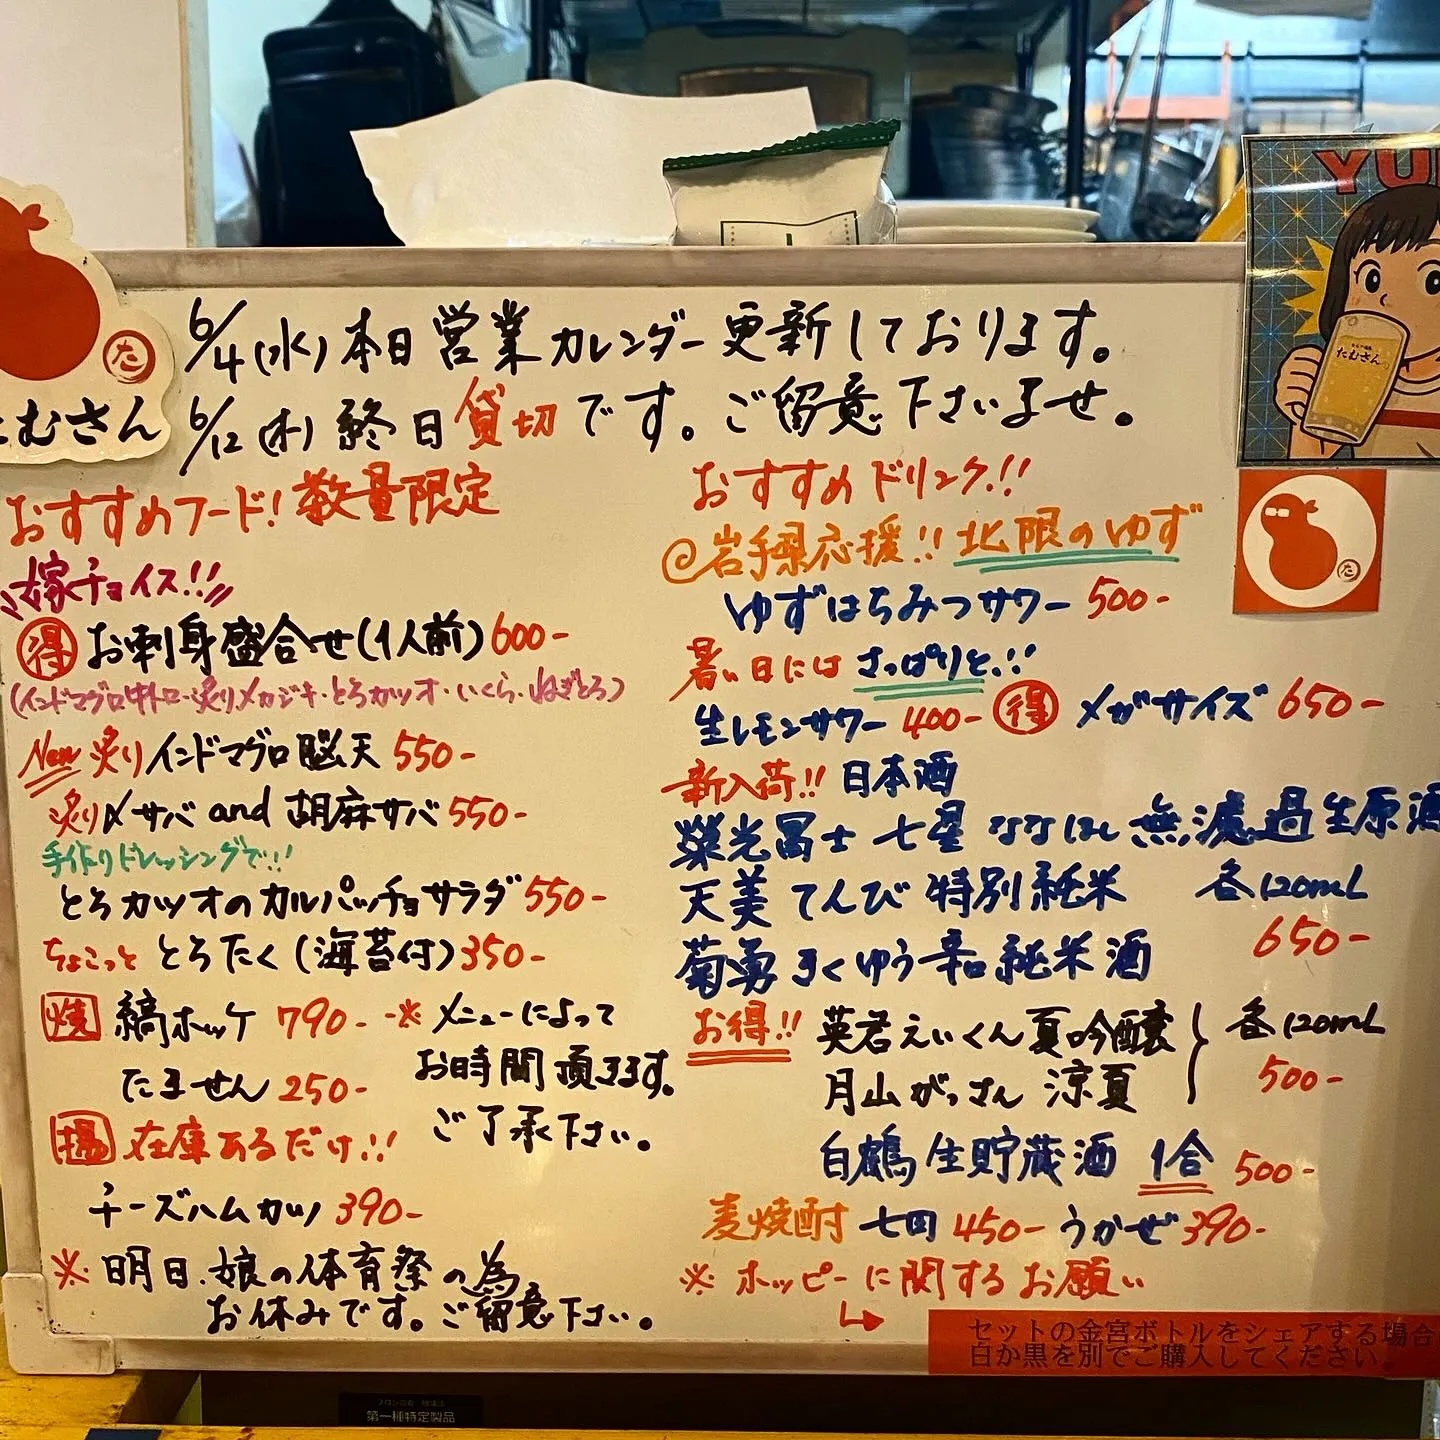 6/4(水)本日営業カレンダー更新しております。
6/12(木)終日貸切です。ご留意下さいませ。
たむさん
YU
たむさん
おすすめフード!数量限定
嫁チョイス!!
得 お刺身盛合せ(1人前)600-
(インドマグロ中トロ・炙りメカジキ・とろカツオ・いくら・ねぎとろ)
New 炙りインドマグロ脳天 550-
炙り〆サバ and 胡麻サバ 550-
手作りドレッシングで!!
とろカツオのカルパッチョサラダ 550-
ちょこっと とろたく(海苔付)350-
焼 縞ホッケ 790-
たません 250-
※メニューによって
お時間頂きます。
ご了承下さい。
揚 在庫あるだけ!!
チーズハムカツ 390-
※明日、娘の体育祭の為
お休みです。ご留意下さい。
おすすめドリンク!!
@岩手県応援!!北限のゆず
ゆずはちみつサワー 500-
暑い日にはさっぱりと!!
生レモンサワー 400- 得 メガサイズ 650-
新入荷!! 日本酒
榮光冨士 七星 ななほし 無濾過生原酒
天美 てんび 特別純米 各120mL
菊勇 きくゆう 辛 純米酒 650-
お得!! 英君えいくん夏吟醸 各120mL
月山 がっさん 涼夏 500-
白鶴 生貯蔵酒 1合 500-
麦焼酎 七田 450- うかぜ 390-
※ホッピーに関するお願い
セットの金宮ボトルをシェアする場合
白か黒を別でご購入してください。
第一種特定製品